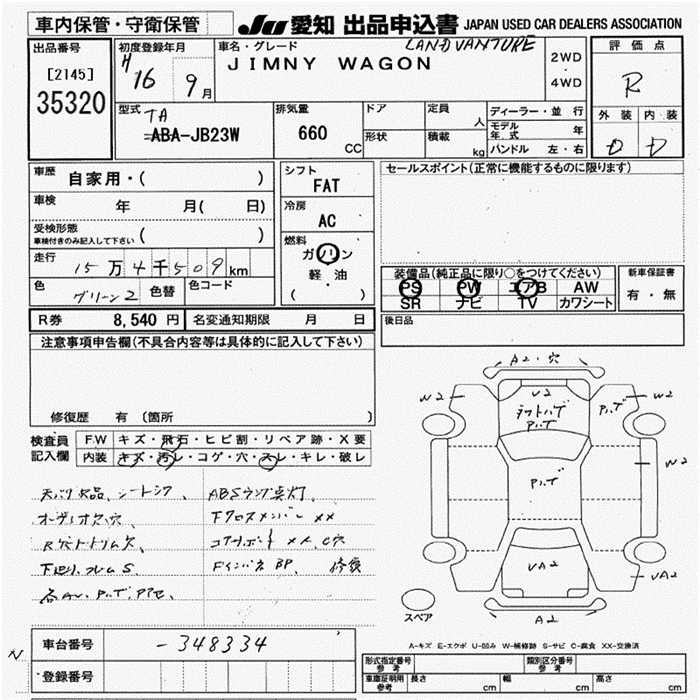 車内保管・守衛保管
JU 愛知 出品申込書 JAPAN USED CAR DEALERS ASSOCIATION
出品番号
[2145]
35320
初度登録年月
H 16 9月
車名・グレード
LAND VANTURE
JIMNY WAGON
2WD
・
4WD
評価点
R
外装 内装
D D
型式
TA
ABA-JB23W
排気量
660
CC
ドア
形状
定員
人
積載
kg
ディーラー・並行
モデル年式 年
ハンドル 左・右
車歴
自家用・( )
車検
年 月( 日)
受検形態
車検付きのみ記入して下さい ( )
走行
15万4千509km
色
グリーン2
色替
色コード
シフト
FAT
冷房
AC
燃料
ガソリン
軽・油
( )
セールスポイント(正常に機能するものに限ります)
装備品(純正品に限り○をつけてください)
PS PW エアB AW
SR ナビ TV カワシート
新車保証書
有・無
R券 8,540 円 名変通知期限 月 日
後日品
注意事項申告欄(不具合内容等は具体的に記入して下さい)
修復歴 有 (箇所 )
検査員
記入欄
F.W キズ・飛石・ヒビ割・リペア跡・X要
内装 キズ・汚レ・コゲ・穴・スレ・キレ・破レ
ABSランプ点灯、
オーディオ欠、穴
下クロスメンバー XX
コアサポート XX、C穴
下廻り、フレームS
Fインパネ BP、 修復
A2・穴
W2
V2
W2
W2
VA2
VA2
A2
スペア
A-キズ E-エクボ U-凹み W-補修跡 S-サビ C-腐食 XX-交換済
車台番号
-348334
N
登録番号
形式指定番号
参考
類別区分番号
参考
車庫証明用
参考
長さ cm 幅 cm 高さ cm